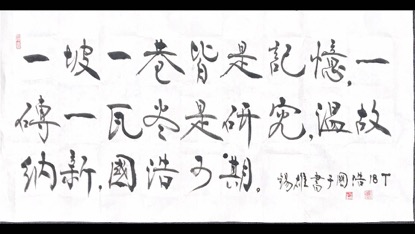 一坡一巷皆是記憶,一
磚一瓦盡是研究,溫故
納新,國浩可期。
錫雄書于國浩18T